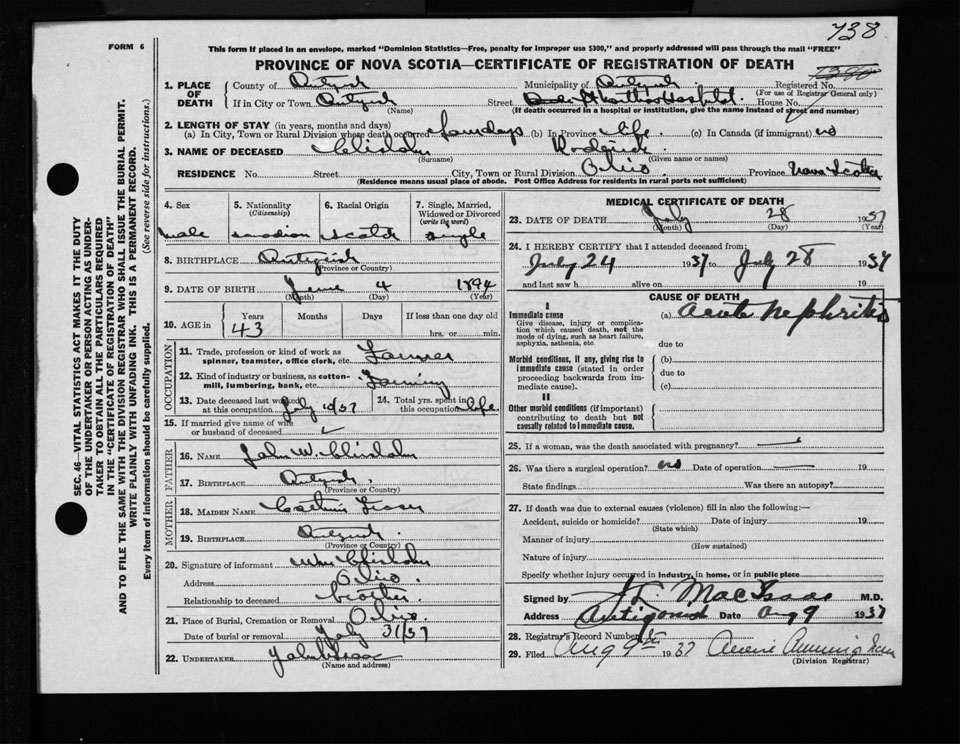 738
FORM 6
This form if placed in an envelope, marked "Dominion Statistics—Free, penalty for improper use $300," and properly addressed will pass through the mail "FREE"
PROVINCE OF NOVA SCOTIA—CERTIFICATE OF REGISTRATION OF DEATH
1. PLACE OF DEATH County of Antigonish Municipality of Antigonish Registered No.
(For use of Registrar General only)
If in City or Town Antigonish Street Hospital House No.
(Name) (If death occurred in a hospital or institution, give the name instead of street and number)
2. LENGTH OF STAY (in years, months and days)
(a) In City, Town or Rural Division where death occurred four days (b) In Province life (c) In Canada (if immigrant) no
3. NAME OF DECEASED Chisholm Roderick
(Surname) (Given name or names)
RESIDENCE No. Street City, Town or Rural Division Ohio Province Nova Scotia
(Residence means usual place of abode. Post Office Address for residents in rural parts not sufficient)
4. Sex 5. Nationality (Citizenship) 6. Racial Origin 7. Single, Married, Widowed or Divorced (write the word)
male Canadian Scotch single
8. BIRTHPLACE Antigonish
(Province or Country)
9. DATE OF BIRTH June 4 1894
(Month) (Day) (Year)
10. AGE in Years Months Days If less than one day old
43 hrs. or min.
OCCUPATION
11. Trade, profession or kind of work as spinner, teamster, office clerk, etc. Farmer
12. Kind of industry or business, as cotton-mill, lumbering, bank, etc. Farming
13. Date deceased last worked at this occupation July 10/37 14. Total yrs. spent in this occupation life
15. If married give name of wife or husband of deceased
FATHER
16. NAME John W. Chisholm
17. BIRTHPLACE Antigonish
(Province or Country)
MOTHER
18. MAIDEN NAME Fraser
19. BIRTHPLACE Antigonish
(Province or Country)
20. Signature of informant Wm Chisholm
Address Ohio
Relationship to deceased brother
21. Place of Burial, Cremation or Removal Ohio
Date of burial or removal July 31/37
22. UNDERTAKER
(Name and address)
MEDICAL CERTIFICATE OF DEATH
23. DATE OF DEATH July 28 1937
(Month) (Day) (Year)
24. I HEREBY CERTIFY that I attended deceased from:
July 24 1937 to July 28 1937
and last saw h alive on 19
CAUSE OF DEATH
I
Immediate cause (a) Acute nephritis
Give disease, injury or complication which caused death, not the mode of dying, such as heart failure, asphyxia, asthenia, etc.
due to
Morbid conditions, if any, giving rise to immediate cause (stated in order proceeding backwards from immediate cause).
(b)
due to
(c)
II
Other morbid conditions (if important) contributing to death but not causally related to immediate cause.
25. If a woman, was the death associated with pregnancy?
26. Was there a surgical operation? no Date of operation 19
State findings Was there an autopsy?
27. If death was due to external causes (violence) fill in also the following:—
Accident, suicide or homicide? Date of injury 19
(State which)
Manner of injury
(How sustained)
Nature of injury
Specify whether injury occurred in industry, in home, or in public place
Signed by MacIsaac M.D.
Address Antigonish Date Aug 9 1937
28. Registrar's Record Number
29. Filed Aug 9th 1937
(Division Registrar)
SEC. 46—VITAL STATISTICS ACT MAKES IT THE DUTY
OF THE UNDERTAKER OR PERSON ACTING AS UNDER-
TAKER TO OBTAIN ALL THE PARTICULARS REQUIRED
IN THE "CERTIFICATE OF REGISTRATION OF DEATH"
AND TO FILE THE SAME WITH THE DIVISION REGISTRAR WHO SHALL ISSUE THE BURIAL PERMIT.
WRITE PLAINLY WITH UNFADING INK. THIS IS A PERMANENT RECORD.
Every item of information should be carefully supplied. (See reverse side for instructions.)